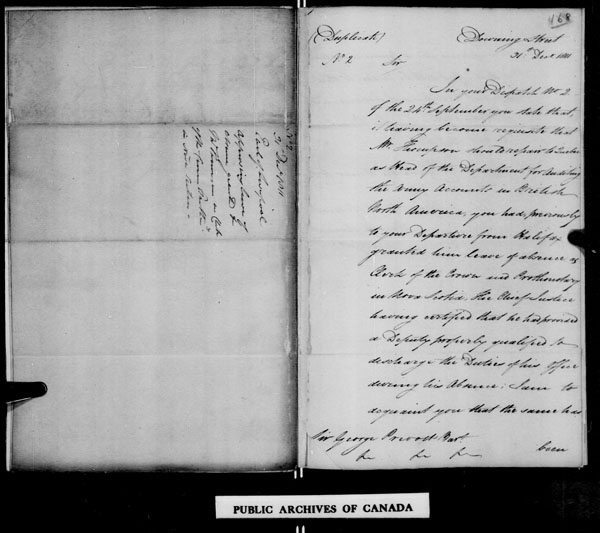 168
(Duplicate)
Downing Street
31st Decr 1811
No 2
Sir
In your Dispatch No 2
of the 24th September you state that,
it having become requisite that
Mr. Thompson should repair to Quebec
as Head of the Department for Auditing
the Army Accounts in British
North America, you had, previously
to your Departure from Halifax
granted him leave of absence as
Clerk of the Crown and Prothonotary
in Nova Scotia, the Chief Justice
having certified that he had provided
a Deputy properly qualified to
discharge the Duties of his Office
during his Absence: I am to
acquaint you that the same has
been
Sir George Prevost Bart
&c &c &c
No 2
31 Decr 1811
Earl of Liverpool
approving leave of
absence granted to
Mr Thompson as Clerk
in Nova Scotia
PUBLIC ARCHIVES OF CANADA